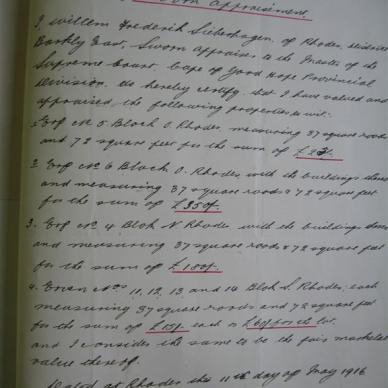 Sworn Appraisement.
I, Willem Frederik Sieberhagen, of Rhodes, District
Barkly East, Sworn Appraiser to the Master of the
Supreme Court, Cape of Good Hope Provincial
Division. do hereby certify that I have valued and
appraised the following properties to wit:
1. Erf No 5 Block O. Rhodes, measuring 37 square roods
and 72 square feet for the sum of
2. Erf No 6 Block O. Rhodes with the buildings thereon
and measuring 37 square roods & 72 square feet
for the sum of £350/-
3. Erf No 4 Blok N Rhodes with the buildings thereon
and measuring 37 square roods & 72 square feet
for the sum of £180/-
4. Erven Nos 11, 12, 13 and 14 Blok S. Rhodes; each
measuring 37 square roods and 72 square feet
for the sum of £15/- each or £60/- for the lot.
and I consider the same to be the fair market
value thereof.
Dated at Rhodes this 11th day of May 1916